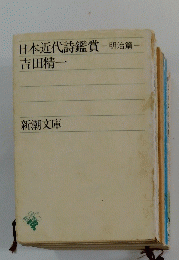 日本近代詩鑑賞 ―明治篇―
吉田精一
新潮文庫